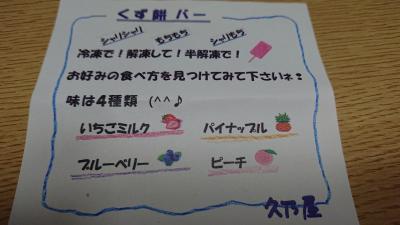 くず餅バー
シャリシャリ もちもち シャリもち
冷凍で！解凍して！半解凍で！
お好みの食べ方を見つけてみて下さいネ❢
味は４種類 (^^♪
いちごミルク パイナップル
ブルーベリー ピーチ
久乃屋